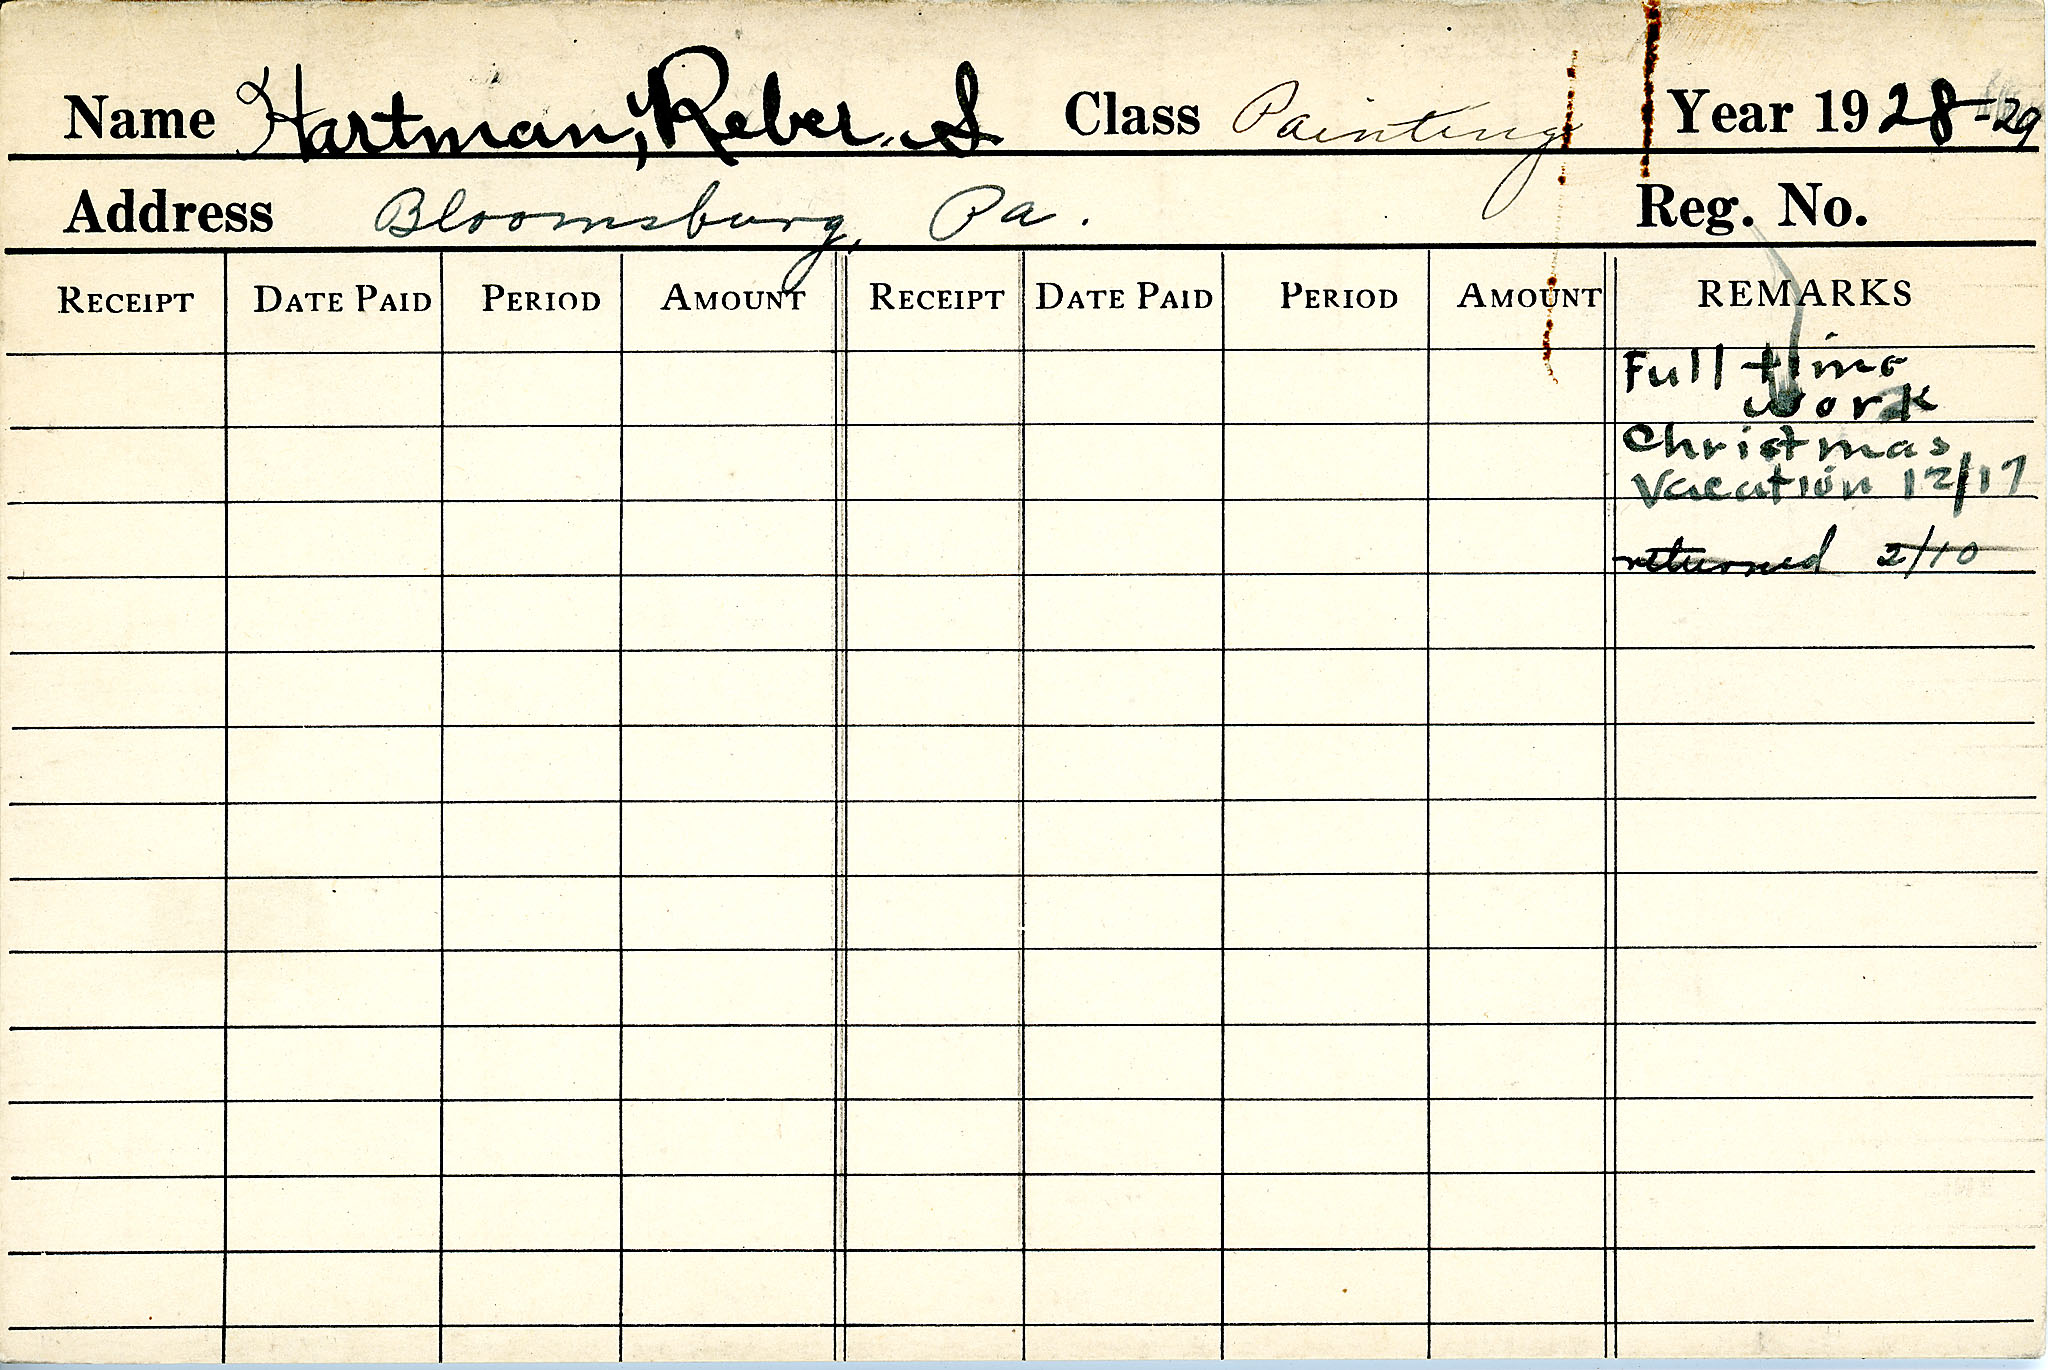 Name Hartman, Reber. S Class Painting Year 1928-29
Address Bloomsburg, Pa. Reg. No.
RECEIPT DATE PAID PERIOD AMOUNT RECEIPT DATE PAID PERIOD AMOUNT REMARKS
Full time
work
Christmas
Vacation 12/17
returned 2/10